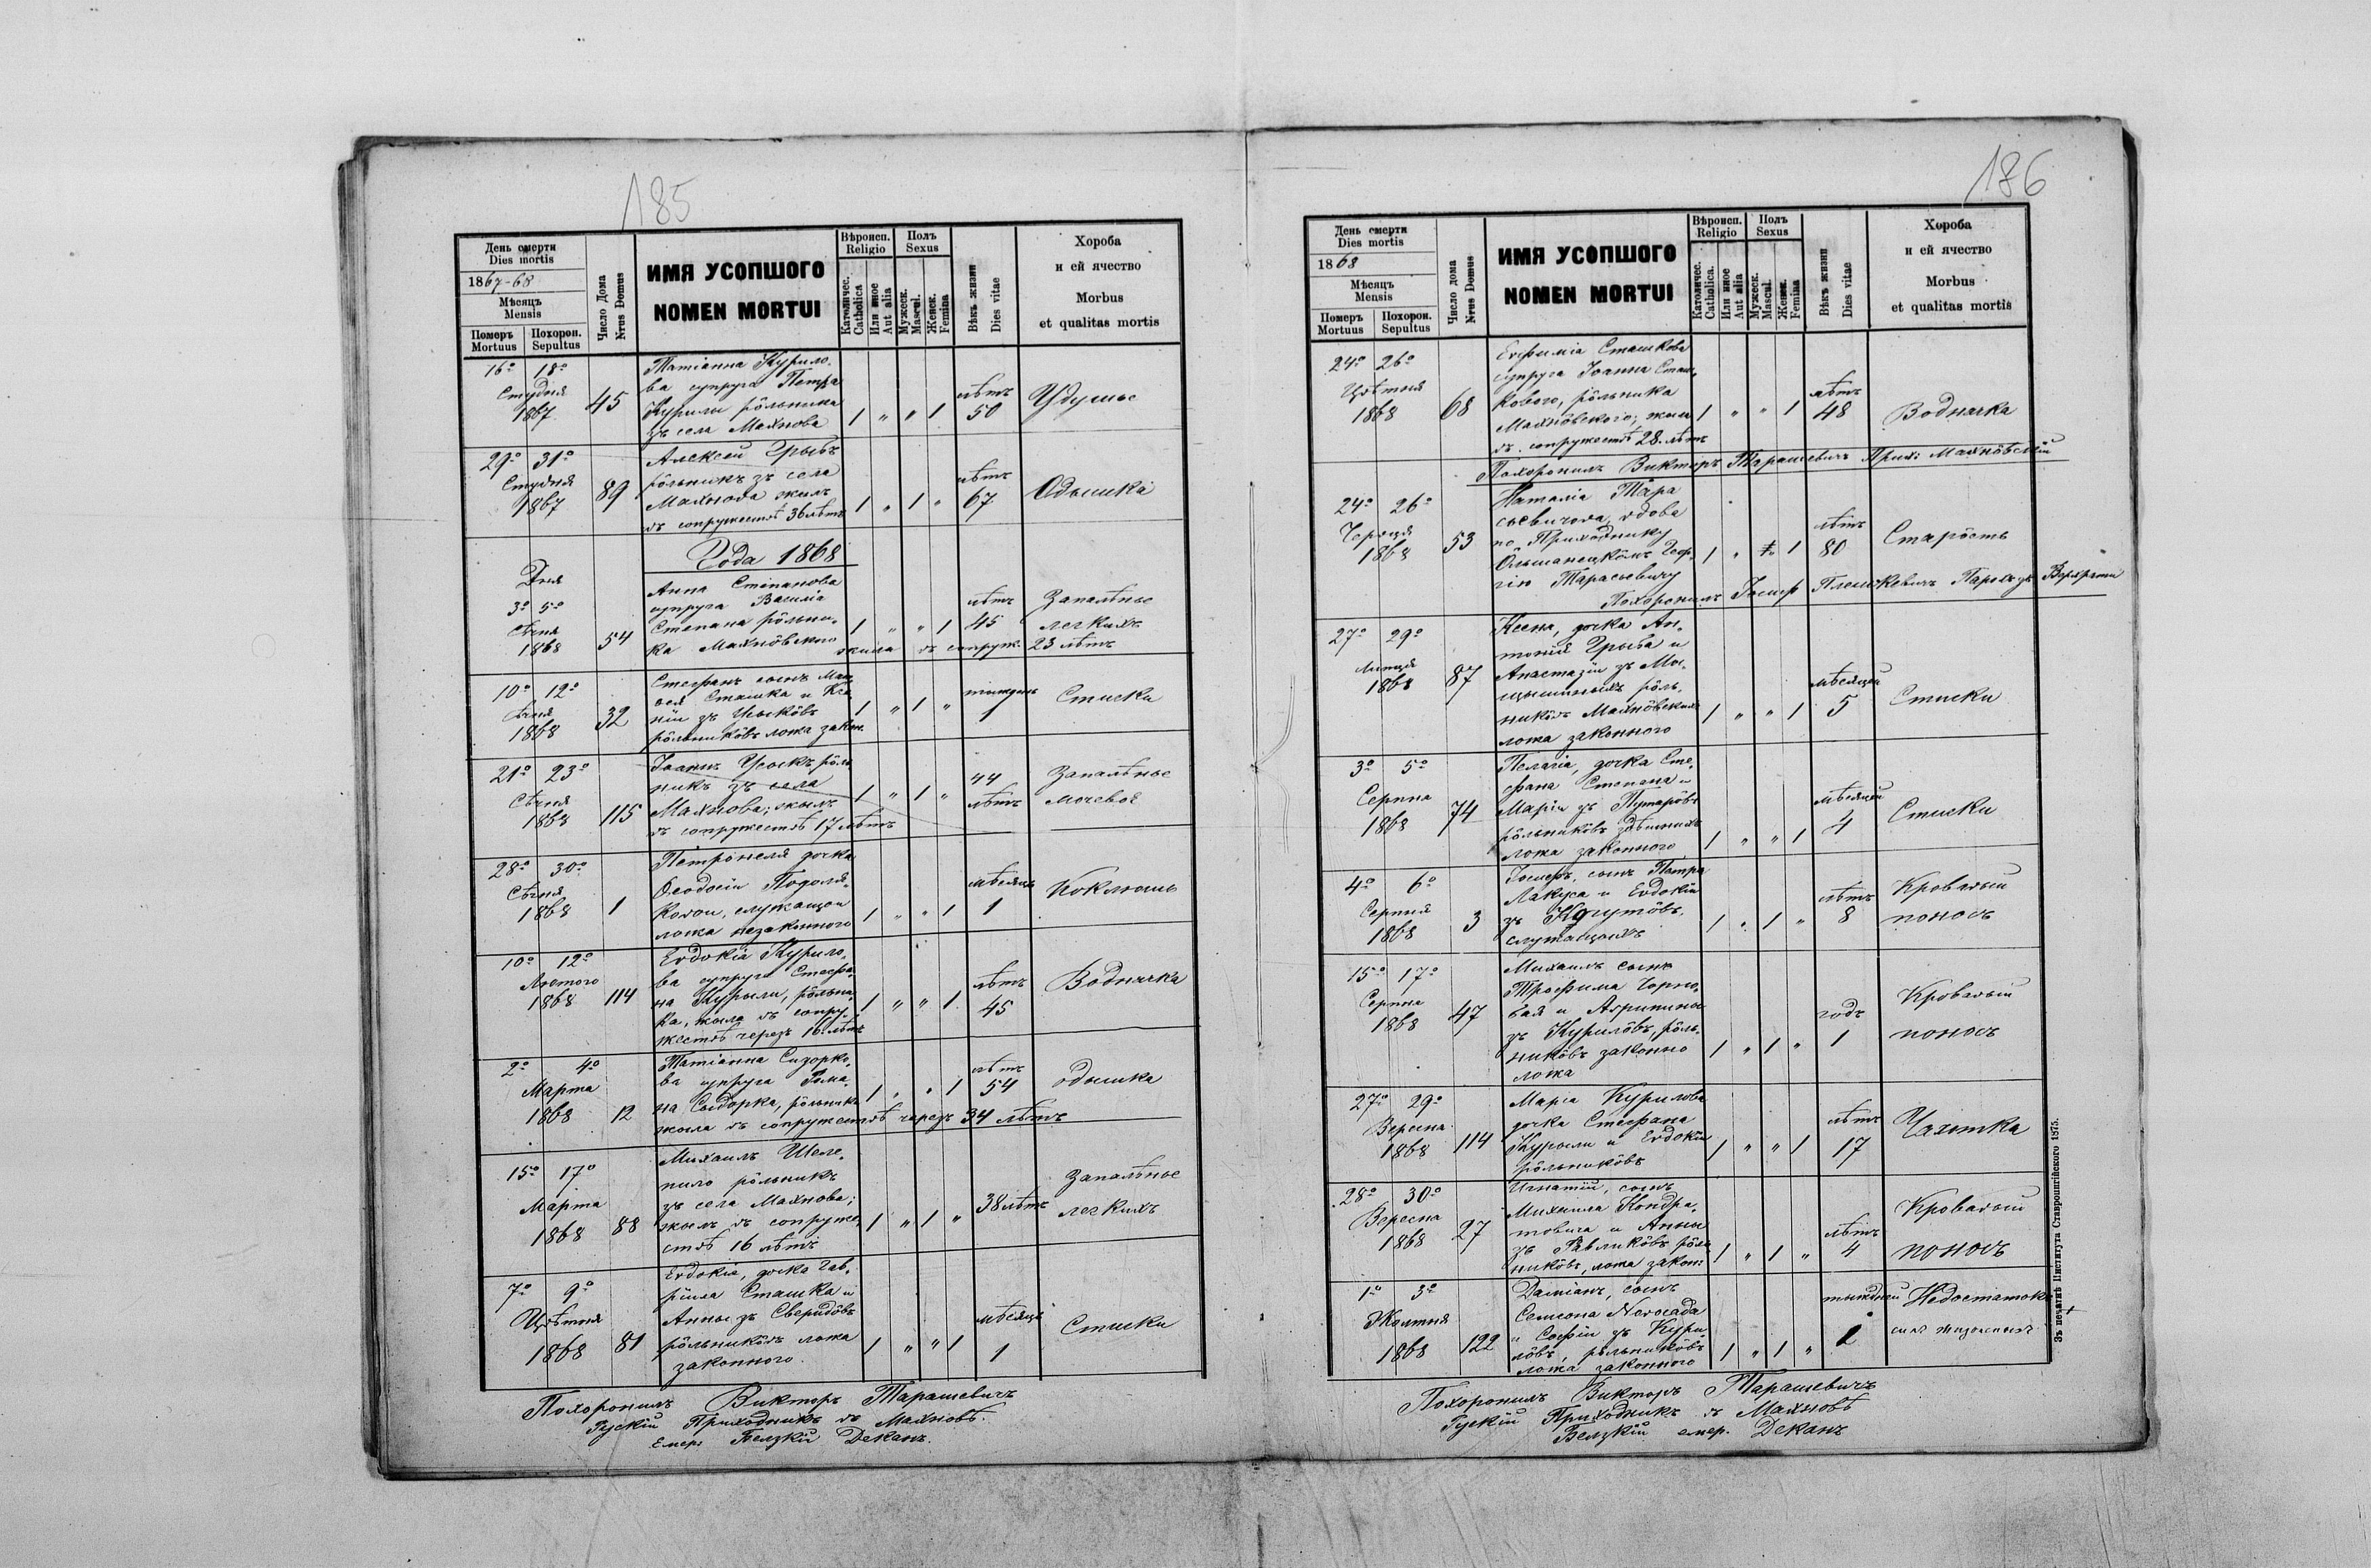 185
День смерти
Dies mortis
1867-68
Мѣсяцъ
Mensis
Померъ Похорон.
Mortuus Sepultus
Число Дома
Nrus Domus
ИМЯ УСОПШОГО
NOMEN MORTUI
Вѣроисп.
Religio
Католичес.
Catholica
Или иное
Aut alia
Полъ
Sexus
Мужеск.
Mascul.
Женск.
Femina
Вѣкъ жизни
Dies vitae
Хороба
и ей ячество
Morbus
et qualitas mortis
16º 18º
Студня
1867
45
Татіанна Курило-
ва супруга Петра
Курилы рôльника
зъ села Махнова
1 " " 1
лѣтъ
50
Удушье
29º 31º
Студня
1867
89
Алексей Грыбъ
рôльникъ зъ села
Махнова жилъ
въ сопружествѣ 36 лѣтъ
1 " 1 "
лѣтъ
67
Одышка
Года 1868
Дня
3º 5º
Сѣчня
1868
54
Анна Степанова
супруга Василіа
Степана рôльни-
ка Махнôвского жила въ сопруж. 23 лѣтъ
1 " " 1
лѣтъ
45
Запалѣнье
легкихъ
10º 12º
Сѣчня
1868
32
Стефанъ сынъ
Сташка и
ніи зъ
рôльникôвъ ложа закон.
1 " 1 "
тыждень
1
Стиски
21º 23º
Сѣчня
1868
115
Іоаннъ рôль
никъ зъ села
Махнова; жилъ
въ сопружествѣ 17 лѣтъ
1 " 1 "
44
лѣтъ
Запалѣнье
28º 30º
Сѣчня
1868
1
Петронеля дочка
Ѳеодосіи Подоля-
ковои, служащои
ложа незаконного
1 " " 1
мѣсяцъ
1
Коклюшь
10º 12º
Лютого
1868
114
Евдокіа Курило-
ва супруга Стефа-
на Курылы, рôльни-
ка, жила въ сопру-
жествѣ черезъ 16 лѣтъ
1 " " 1
лѣтъ
45
Воднячка
2º 4º
Марта
1868
12
Татіанна Сидорко-
ва супруга Рома-
на Сыдорка, рôльника
жила въ сопружествѣ черезъ 34 лѣтъ
1 " " 1
лѣтъ
54
одышка
15º 17º
Марта
1868
88
Михаилъ Шеле-
пило рôльникъ
зъ села Махнова;
жилъ въ сопруже-
ствѣ 16 лѣтъ
1 " 1 "
38 лѣтъ
Запалѣнье
легкихъ
7º 9º
Цвѣтня
1868
81
Евдокіа, дочка Гав-
ріила Сташка и
Анны зъ Свѣридôвъ
рôльникôвъ ложа
законного.
1 " " 1
мѣсяцъ
1
Стиски
Похоронилъ Викторъ Тарашевичъ
Рускій Приходникъ въ Махновѣ.
Емер: Белзкій Деканъ.
186
День смерти
Dies mortis
1868
Мѣсяцъ
Mensis
Померъ Похорон.
Mortuus Sepultus
Число дома
Nrus Domus
ИМЯ УСОПШОГО
NOMEN MORTUI
Вѣроисп.
Religio
Католичес.
Catholica.
Или иное
Aut alia
Полъ
Sexus
Мужеск.
Mascul.
Женск.
Femina
Вѣкъ жизни
Dies vitae
Хороба
и ей ячество
Morbus
et qualitas mortis
24º 26º
Цвѣтня
1868
68
Евфиміа Сташкова
супруга Іоанна Сташ-
кового, рôльника
Махнôвского; жила
въ сопружествѣ 28 лѣтъ
1 " " 1
лѣтъ
48
Воднячка
Похоронилъ Викторъ Тарашевичъ Прих: Махнôвскій
24º 26º
Червця
1868
53
Наталіа Тара
сьевичова, вдова
по Приходнику
Ôльшанецкôмъ
Тарасьевичу
1 " 1
лѣтъ
80
Старôсть
Похоронилъ Іосифъ Парохъ зъ Верхраты
27º 29º
Липця
1868
87
Ксена, дочка Ан-
тонія Грыба и
Анастазіи зъ
рôль-
никôвъ Махнôвскихъ
ложа законного
1 " " 1
мѣсяцей
5
Стиски
3º 5º
Серпня
1868
74
Пелагіа, дочка Сте-
фана Степана и
Маріи зъ
рôльникôвъ здѣшнихъ
ложа законного
1 " " 1
мѣсяцей
4
Стиски
4º 6º
Серпня
1868
3
Іосифъ, сынъ Петра
Лакуса и Евдокіи
зъ Когутôвъ,
служащихъ
1 " 1 "
лѣтъ
8
Кровавый
поносъ
15º 17º
Серпня
1868
47
Михаилъ сынъ
Трофима Горно-
бая и Агрипины
зъ Курилôвъ, рôль-
никôвъ законно
ложа
1 " 1 "
годъ
1
Кровавый
поносъ
27º 29º
Вересня
1868
114
Маріа Курилова
дочка Стефана
Курылы и Евдокіи
рôльникôвъ
1 " " 1
лѣтъ
17
Чахотка
28º 30º
Вересня
1868
27
Игнатій, сынъ
Михаила Кондра-
товича и Анны
зъ Равликôвъ рôль
никôвъ, ложа закон:
1 " 1 "
лѣтъ
4
Кровавый
поносъ
1º 3º
Жолтня
1868
122
Даміанъ, сынъ
Семеона
и Софіи зъ Кури-
лôвъ, рôльникôвъ
ложа законного
1 " 1 "
тыждни
2
Недостатокъ
силъ жизненныхъ
Похоронилъ Викторъ Тарашевичъ
Рускій Приходникъ въ Махновѣ
Белзкій емер. Деканъ
Зъ печатнѣ Института Ставропигійского 1875.